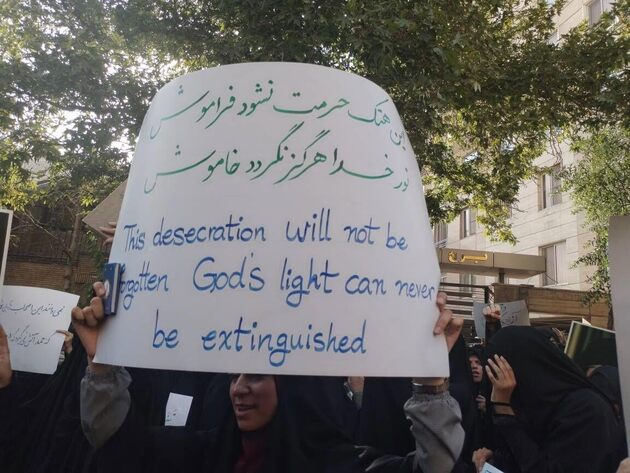 این هتک حرمت نشود فراموش
نور خدا هرگز نگردد خاموش
This desecration will not be
forgotten God's light can never
be extinguished